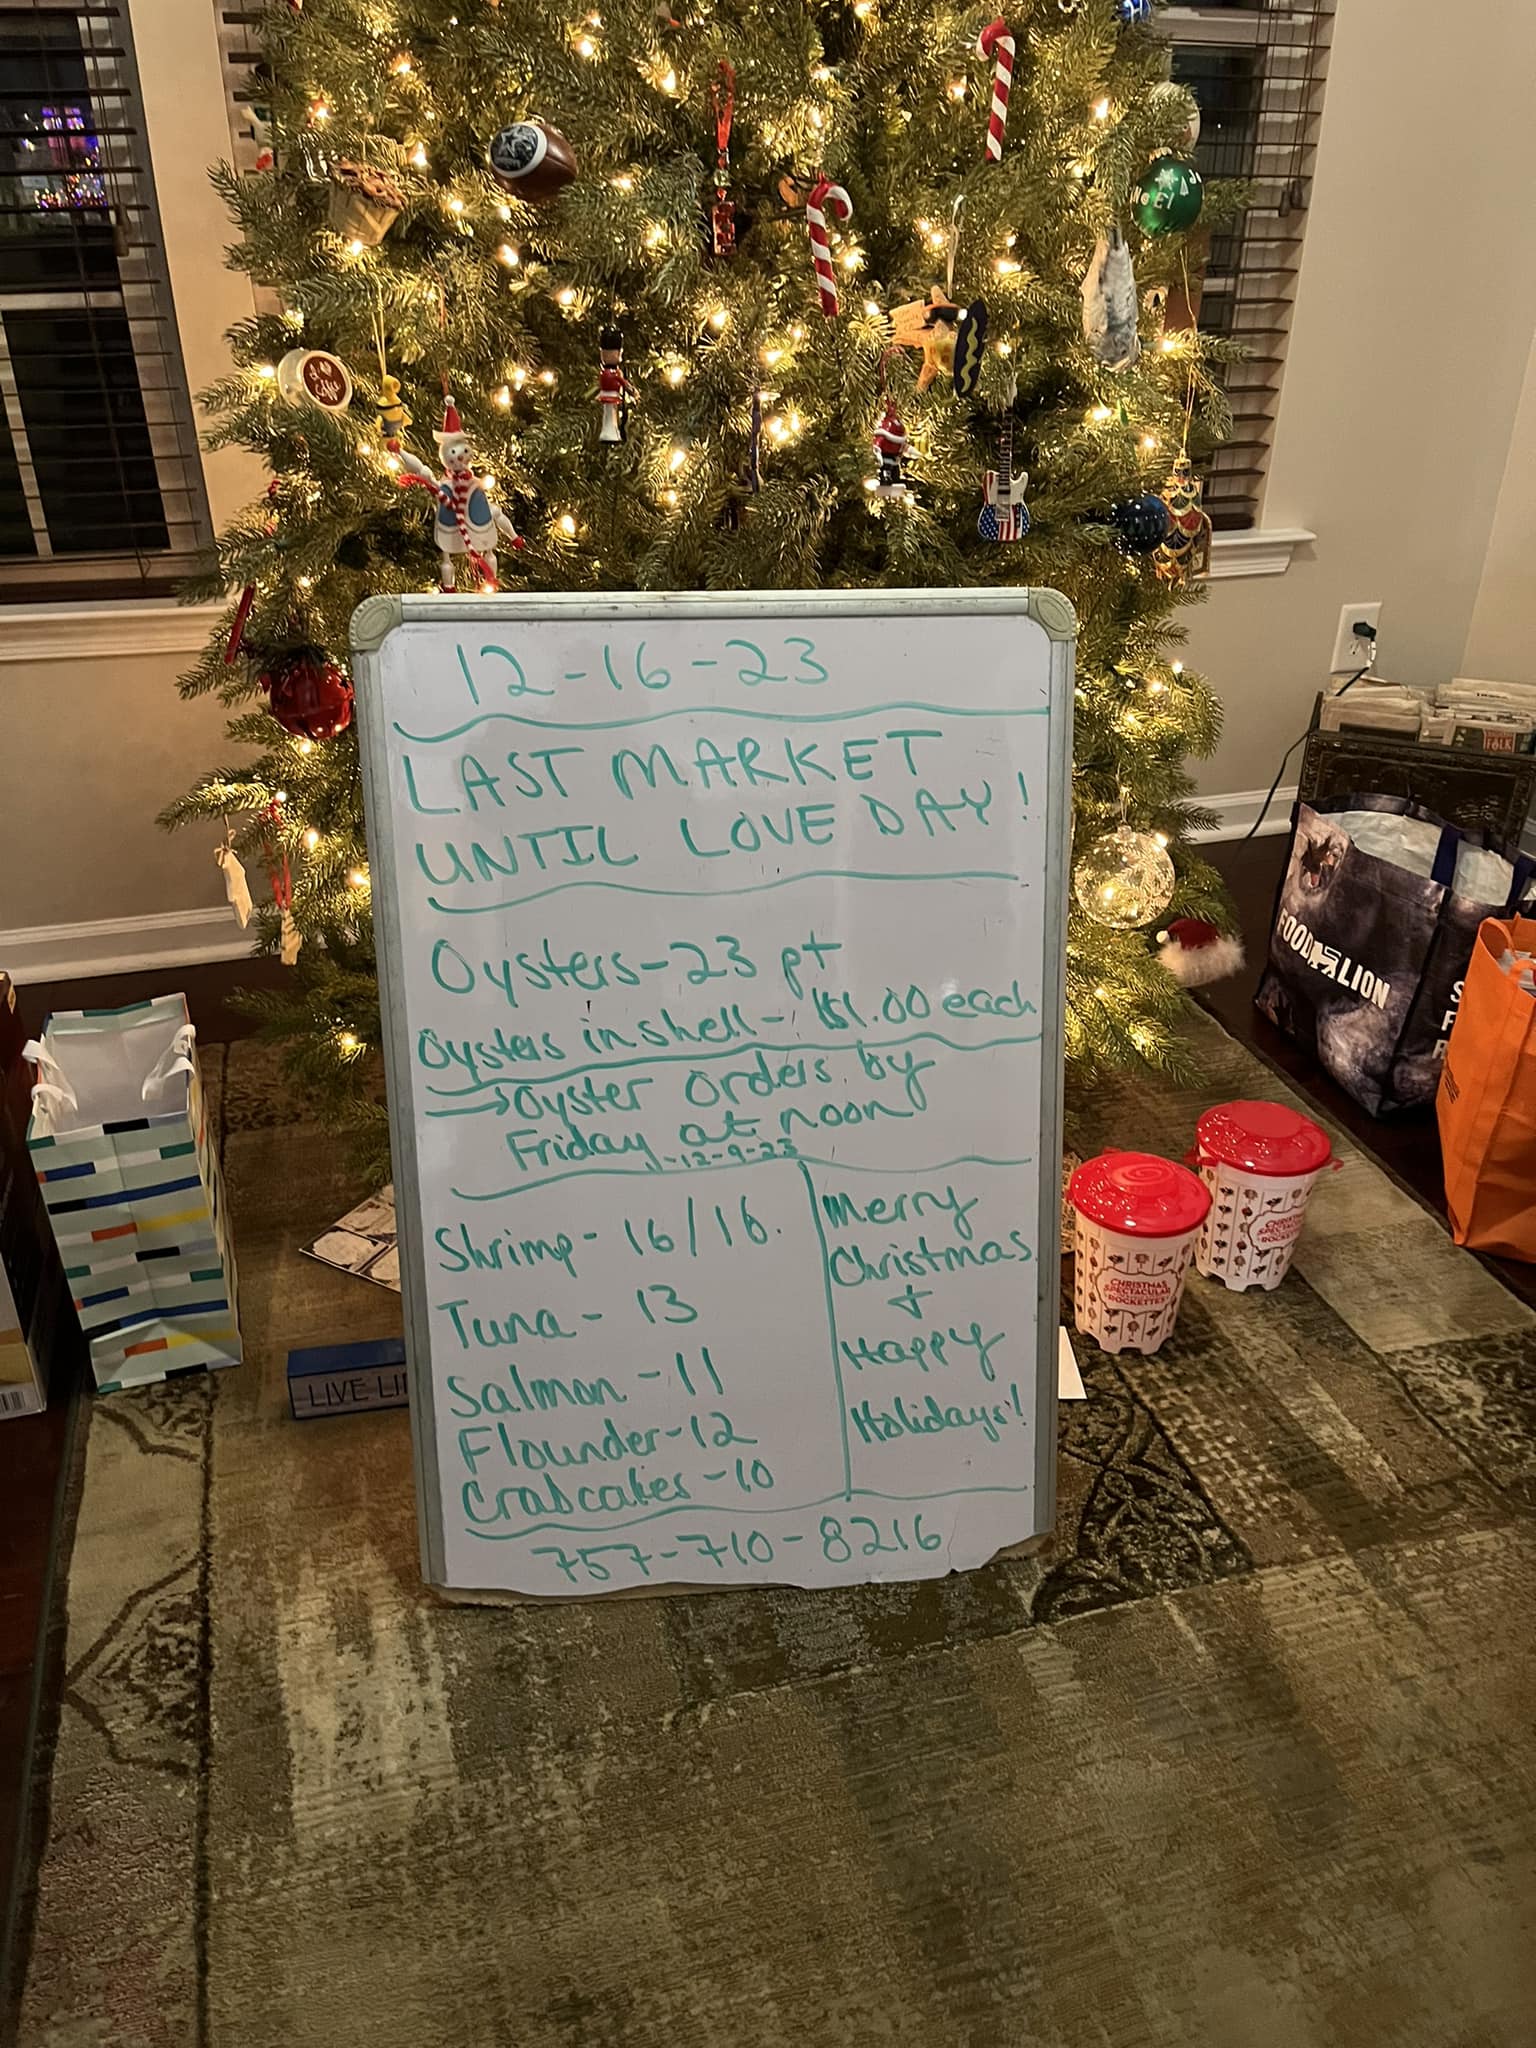 NOEL
12-16-23
LAST MARKET
UNTIL LOVE DAY!
Oysters-23 pt
Oysters in shell- $1.00 each
→Oyster orders by
Friday at noon
-12-9-23
Shrimp- 16/16.
Tuna- 13
Salmon-11
Flounder-12
Crabcakes-10
Merry
Christmas
+
Happy
Holidays!
757-710-8216
FOOD LION
LIVE LI
CHRISTMAS
SPECTACULAR
ROCKETTES
CHRISTMAS
ROCKETTES
FOLK